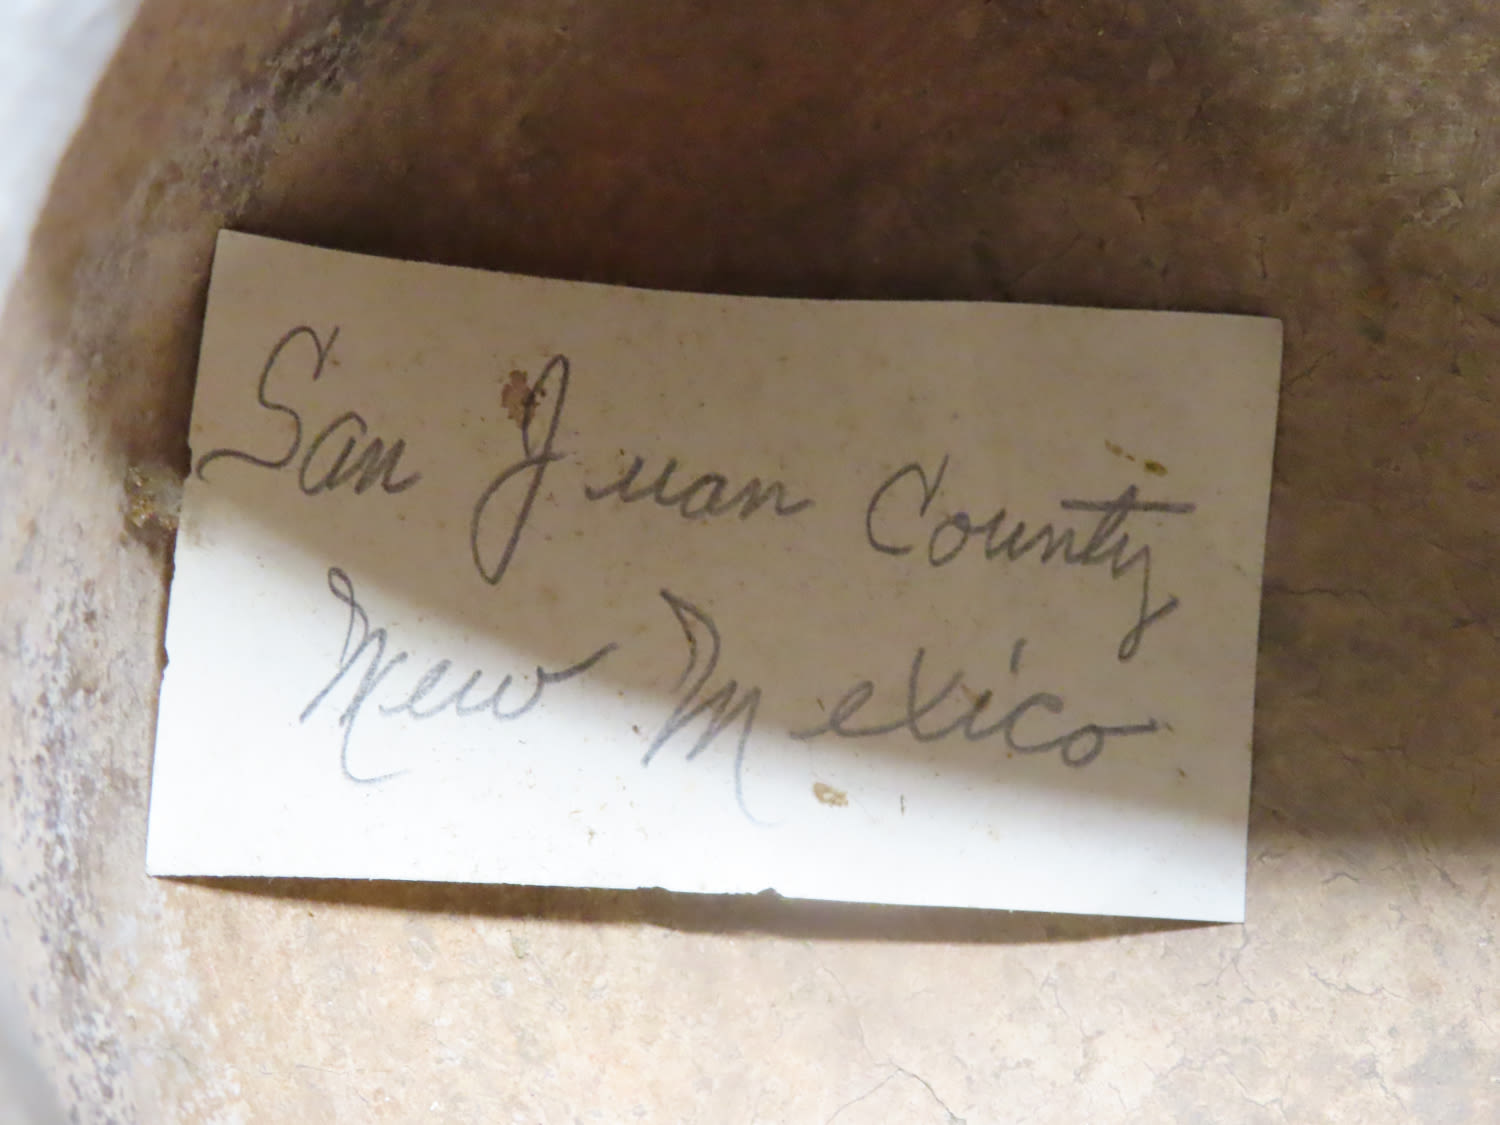 San Juan County
New Mexico